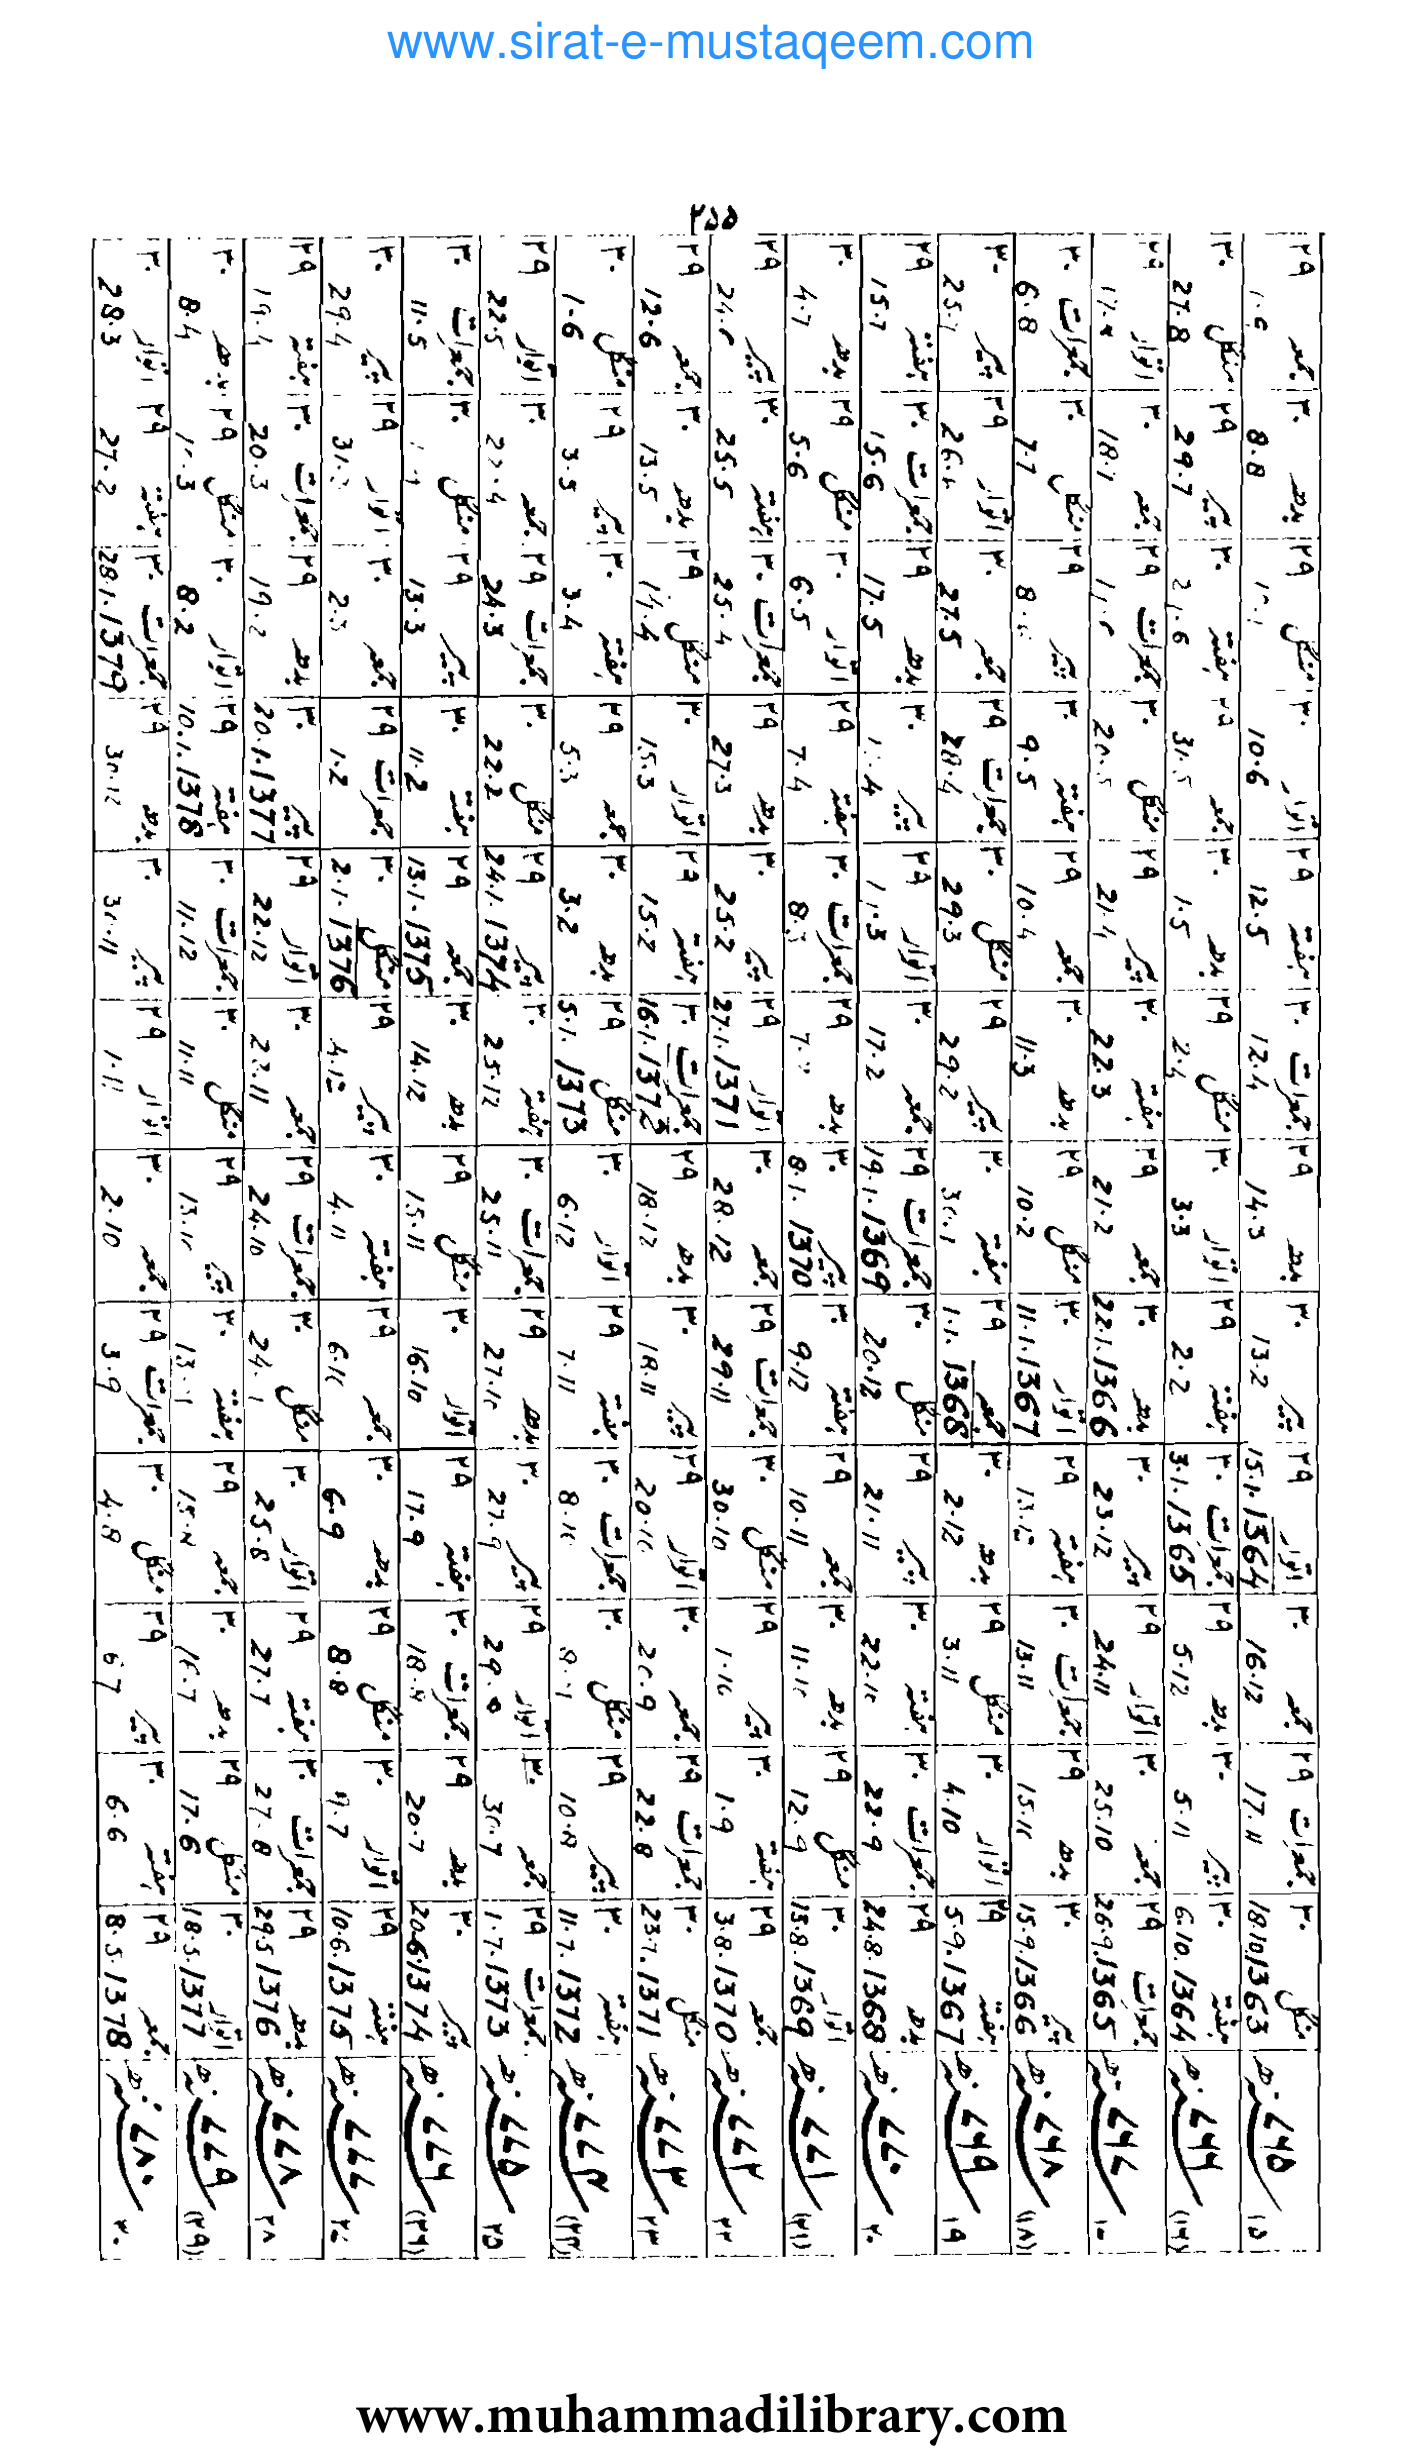 www.sirat-e-mustaqeem.com
۲۵۵
۱۵ ۷۶۵ھ منگل ۳۰ 18.10.1363 جمعرات ۲۹ 17.11 جمعہ ۳۰ 16.12 اتوار ۲۹ 15.1.1364 پیر ۳۰ 13.2 بدھ ۲۹ 14.3 جمعرات ۳۰ 12.4 ہفتہ ۲۹ 12.5 اتوار ۳۰ 10.6 منگل ۲۹ بدھ ۳۰ 8.8 جمعہ ۲۹
(۱۶) ۷۶۶ھ ہفتہ ۳۰ 6.10.1364 پیر ۳۰ 5.11 بدھ ۲۹ 5.12 جمعرات ۳۰ 3.1.1365 ہفتہ ۲۹ 2.2 اتوار ۳۰ 3.3 منگل ۲۹ 2.4 بدھ ۳۰ 1.5 جمعہ ۲۹ 31.5 ہفتہ ۳۰ پیر ۲۹ 29.7 منگل ۳۰ 27.8
۷۶۷ھ جمعرات ۲۹ 26.9.1365 جمعہ ۳۰ 25.10 اتوار ۲۹ 24.11 پیر ۳۰ 23.12 بدھ ۳۰ 22.1.1366 جمعہ ۲۹ 21.2 ہفتہ ۳۰ 22.3 پیر ۲۹ 21.4 منگل ۳۰ 20.5 جمعرات ۲۹ جمعہ ۳۰ 18.7 اتوار ۲۹ 17.8
(۱۸) ۷۶۸ھ پیر ۳۰ 15.9.1366 بدھ ۲۹ 15.10 جمعرات ۳۰ 13.11 ہفتہ ۲۹ 13.12 اتوار ۳۰ 11.1.1367 منگل ۲۹ 10.2 بدھ ۳۰ 11.3 جمعہ ۲۹ 10.4 ہفتہ ۳۰ 9.5 پیر ۲۹ 8.6 منگل ۳۰ 7.7 جمعرات ۳۰ 6.8
۱۹ ۷۶۹ھ ہفتہ ۲۹ 5.9.1367 اتوار ۳۰ 4.10 منگل ۲۹ 3.11 بدھ ۳۰ 2.12 جمعہ ۲۹ 1.1.1368 ہفتہ ۳۰ 30.1 پیر ۲۹ 29.2 منگل ۳۰ 29.3 جمعرات ۲۹ 28.4 جمعہ ۳۰ 27.5 اتوار ۲۹ 26.6 پیر ۳۰ 25.7
۲۰ ۷۷۰ھ بدھ ۲۹ 24.8.1368 جمعرات ۳۰ 22.9 ہفتہ ۳۰ 22.10 پیر ۲۹ 21.11 منگل ۳۰ 20.12 جمعرات ۲۹ 19.1.1369 جمعہ ۳۰ 17.2 اتوار ۲۹ پیر ۳۰ بدھ ۲۹ 17.5 جمعرات ۳۰ 15.6 ہفتہ ۲۹ 15.7
(۲۱) ۷۷۱ھ اتوار ۳۰ 13.8.1369 منگل ۲۹ 12.9 بدھ ۳۰ 11.10 جمعہ ۲۹ 10.11 ہفتہ ۳۰ 9.12 پیر ۳۰ 8.1.1370 بدھ ۲۹ جمعرات ۳۰ 8.3 ہفتہ ۲۹ 7.4 اتوار ۳۰ 6.5 منگل ۲۹ 5.6 بدھ ۳۰ 4.7
۲۲ ۷۷۲ھ جمعہ ۲۹ 3.8.1370 ہفتہ ۳۰ 1.9 پیر ۲۹ 1.10 منگل ۳۰ 30.10 جمعرات ۲۹ 29.11 جمعہ ۳۰ 28.12 اتوار ۲۹ 27.1.1371 پیر ۳۰ 25.2 بدھ ۲۹ 27.3 جمعرات ۳۰ 25.4 ہفتہ ۳۰ 25.5 پیر ۲۹ 24.6
۲۳ ۷۷۳ھ منگل ۳۰ 23.7.1371 جمعرات ۲۹ 22.8 جمعہ ۳۰ 20.9 اتوار ۲۹ 20.10 پیر ۳۰ 18.11 بدھ ۲۹ 18.12 جمعرات ۳۰ 16.1.1372 ہفتہ ۲۹ 15.2 اتوار ۳۰ 15.3 منگل ۲۹ 14.4 بدھ ۳۰ 13.5 جمعہ ۲۹ 12.6
(۲۴) ۷۷۴ھ ہفتہ ۳۰ 11.7.1372 پیر ۲۹ 10.8 منگل ۳۰ جمعرات ۳۰ 8.10 ہفتہ ۲۹ 7.11 اتوار ۳۰ 6.12 منگل ۲۹ 5.1.1373 بدھ ۳۰ 3.2 جمعہ ۲۹ 5.3 ہفتہ ۳۰ 3.4 پیر ۲۹ 3.5 منگل ۳۰ 1.6
۲۵ ۷۷۵ھ جمعرات ۲۹ 1.7.1373 جمعہ ۳۰ 30.7 اتوار ۲۹ 29.8 پیر ۳۰ 27.9 بدھ ۲۹ 27.10 جمعرات ۳۰ 25.11 ہفتہ ۳۰ 25.12 پیر ۲۹ 24.1.1374 منگل ۳۰ 22.2 جمعرات ۲۹ 24.3 جمعہ ۳۰ اتوار ۲۹ 22.5
(۲۶) ۷۷۶ھ پیر ۳۰ 20.6.1374 بدھ ۲۹ 20.7 جمعرات ۳۰ 18.8 ہفتہ ۲۹ 17.9 اتوار ۳۰ 16.10 منگل ۲۹ 15.11 بدھ ۳۰ 14.12 جمعہ ۲۹ 13.1.1375 ہفتہ ۳۰ 11.2 پیر ۲۹ 13.3 منگل ۳۰ جمعرات ۳۰ 11.5
۲۷ ۷۷۷ھ ہفتہ ۲۹ 10.6.1375 اتوار ۳۰ 9.7 منگل ۲۹ 8.8 بدھ ۳۰ 6.9 جمعہ ۲۹ 6.10 ہفتہ ۳۰ 4.11 پیر ۲۹ منگل ۳۰ 2.1.1376 جمعرات ۲۹ 1.2 جمعہ ۳۰ اتوار ۲۹ پیر ۳۰ 29.4
۲۸ ۷۷۸ھ بدھ ۲۹ 29.5.1376 جمعرات ۳۰ 27.8 ہفتہ ۲۹ 27.7 اتوار ۳۰ 25.8 منگل ۳۰ جمعرات ۲۹ 24.10 جمعہ ۳۰ اتوار ۲۹ 22.12 پیر ۳۰ 20.1.1377 بدھ ۲۹ 19.2 جمعرات ۳۰ 20.3 ہفتہ ۲۹ 19.4
(۲۹) ۷۷۹ھ اتوار ۳۰ 18.5.1377 منگل ۲۹ 17.6 بدھ ۳۰ 16.7 جمعہ ۲۹ ہفتہ ۳۰ پیر ۲۹ منگل ۳۰ 11.11 جمعرات ۳۰ 11.12 ہفتہ ۲۹ 10.1.1378 اتوار ۳۰ 8.2 منگل ۲۹ بدھ ۳۰ 8.4
۳۰ ۷۸۰ھ جمعہ ۲۹ 8.5.1378 ہفتہ ۳۰ 6.6 پیر ۲۹ 6.7 منگل ۳۰ 4.8 جمعرات ۲۹ 3.9 جمعہ ۳۰ 2.10 اتوار ۲۹ 1.11 پیر ۳۰ بدھ ۲۹ 30.12 جمعرات ۳۰ 28.1.1379 ہفتہ ۲۹ 27.2 اتوار ۳۰ 28.3
www.muhammadilibrary.com